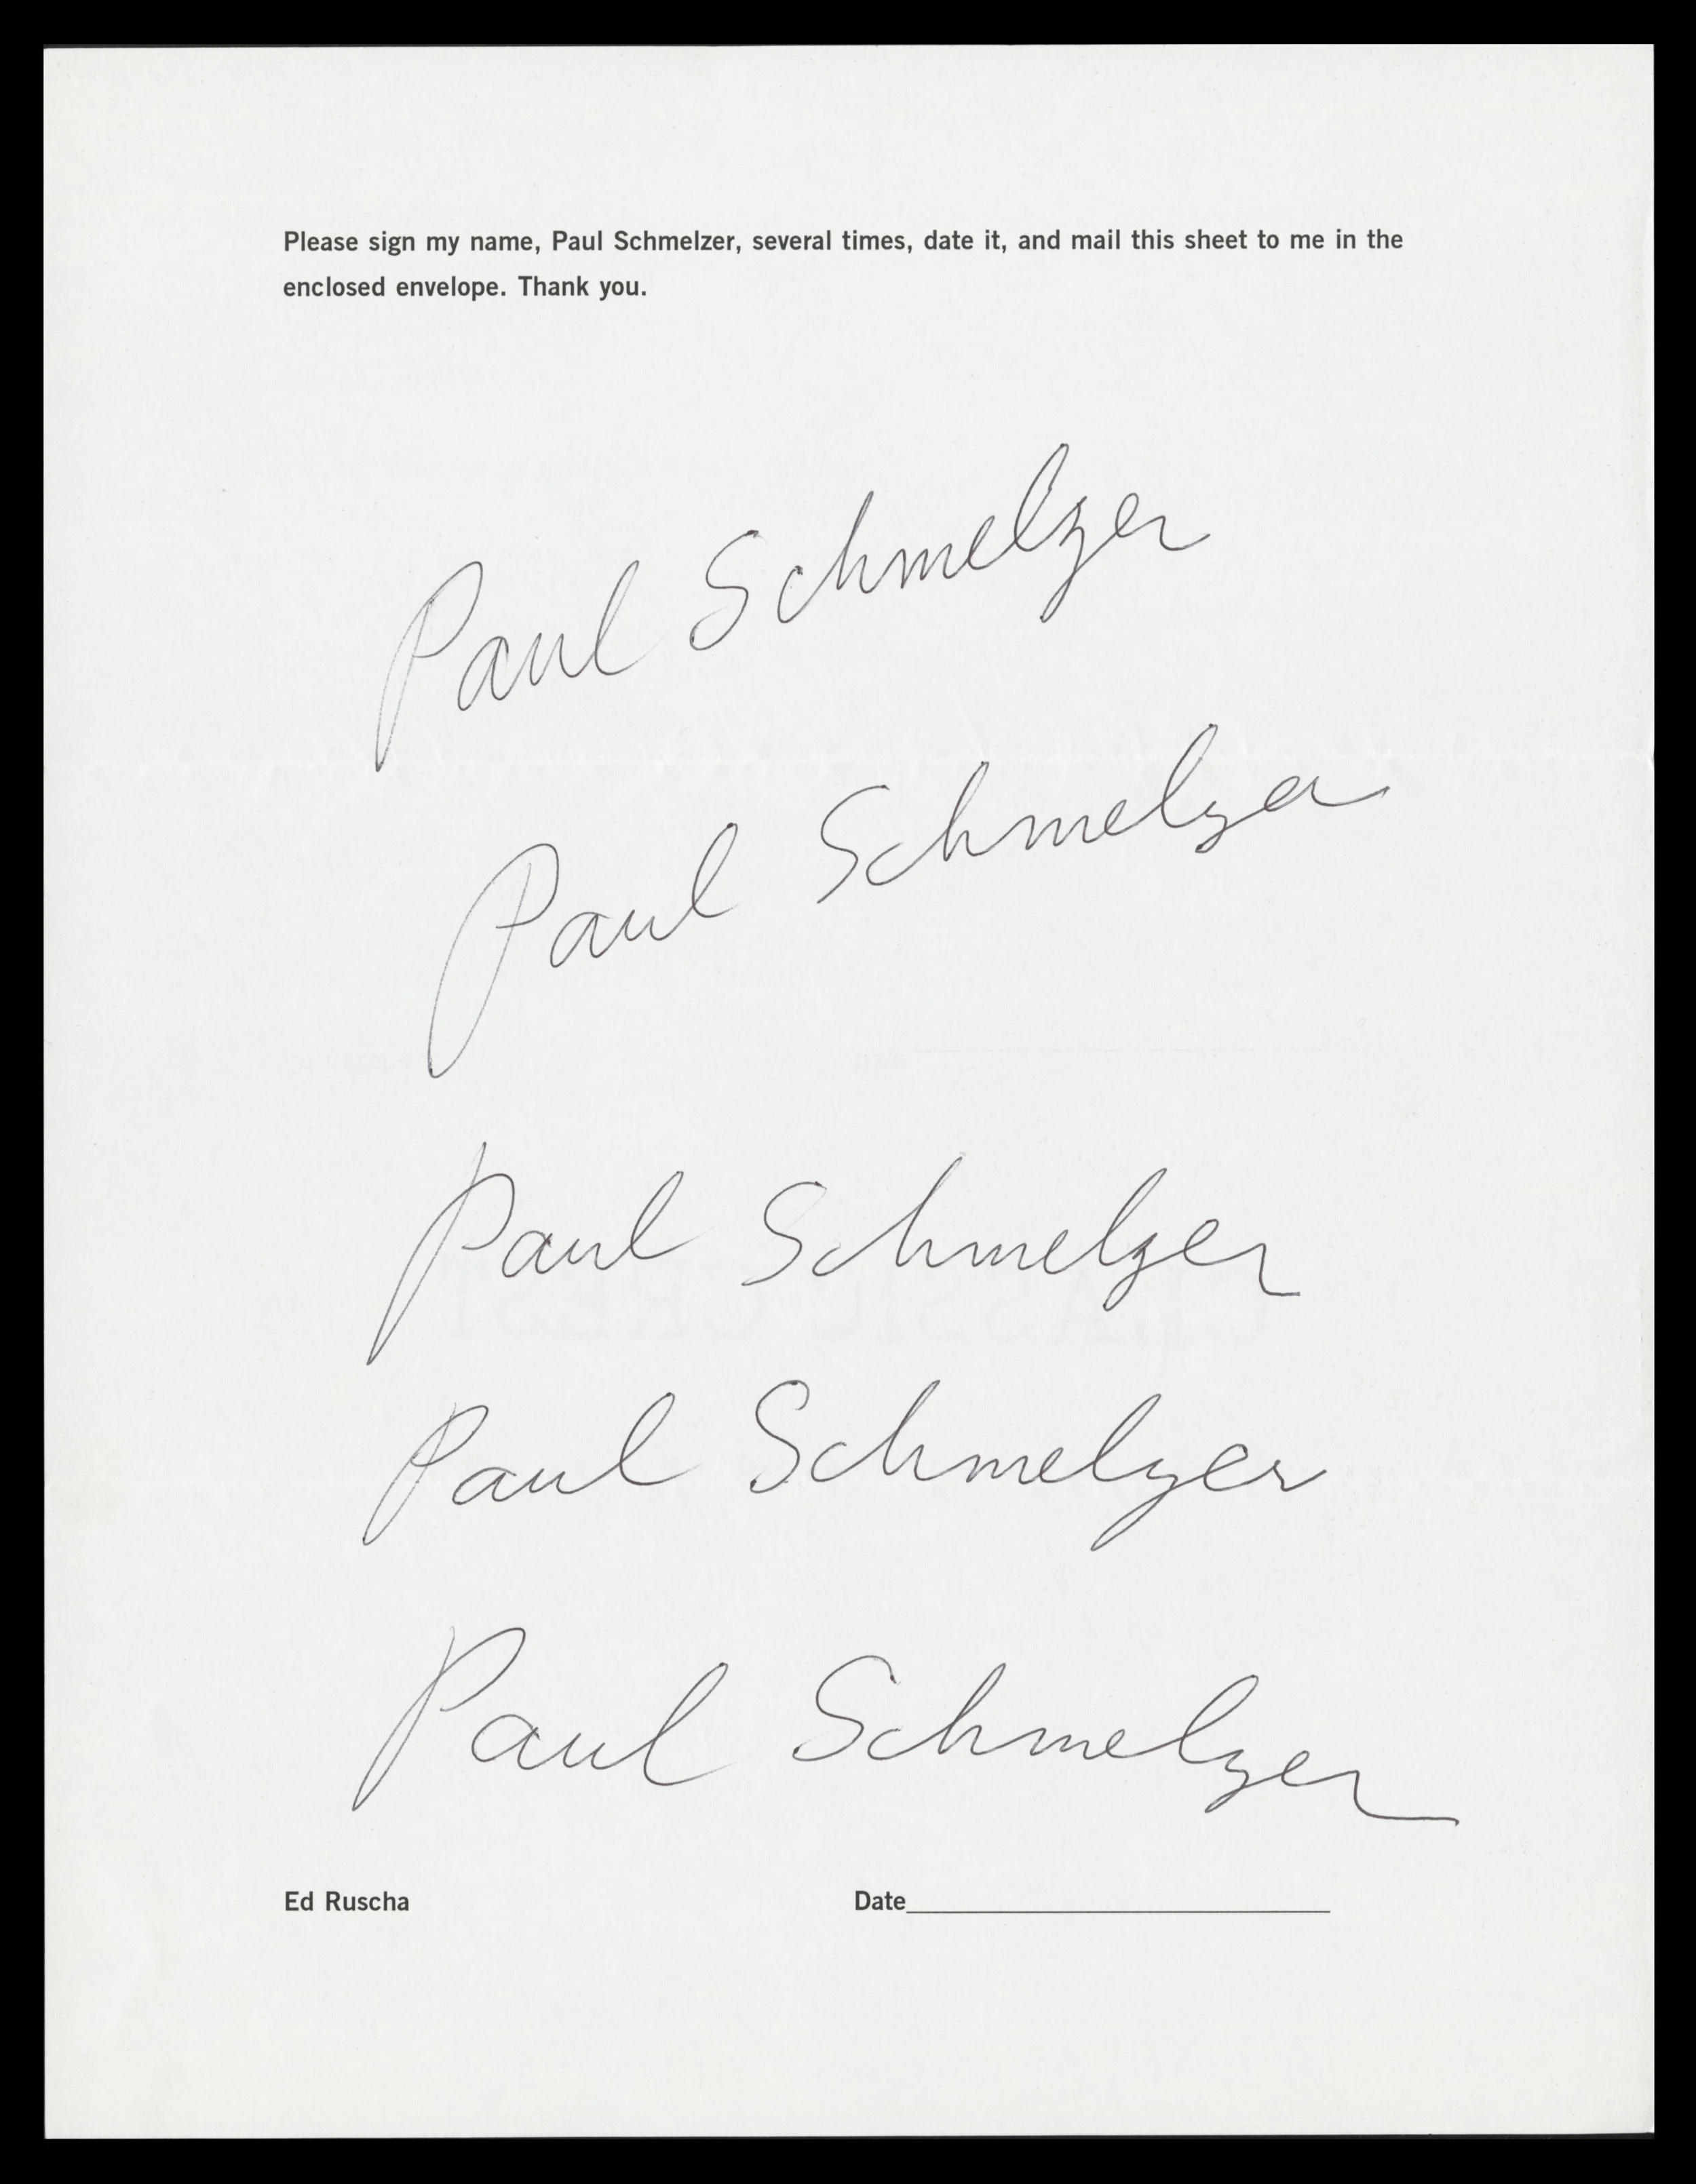 Please sign my name, Paul Schmelzer, several times, date it, and mail this sheet to me in the
enclosed envelope. Thank you.
Paul Schmelzer
Paul Schmelzer
Paul Schmelzer
Paul Schmelzer
Paul Schmelzer
CLASSIC CREST
Ed Ruscha Date